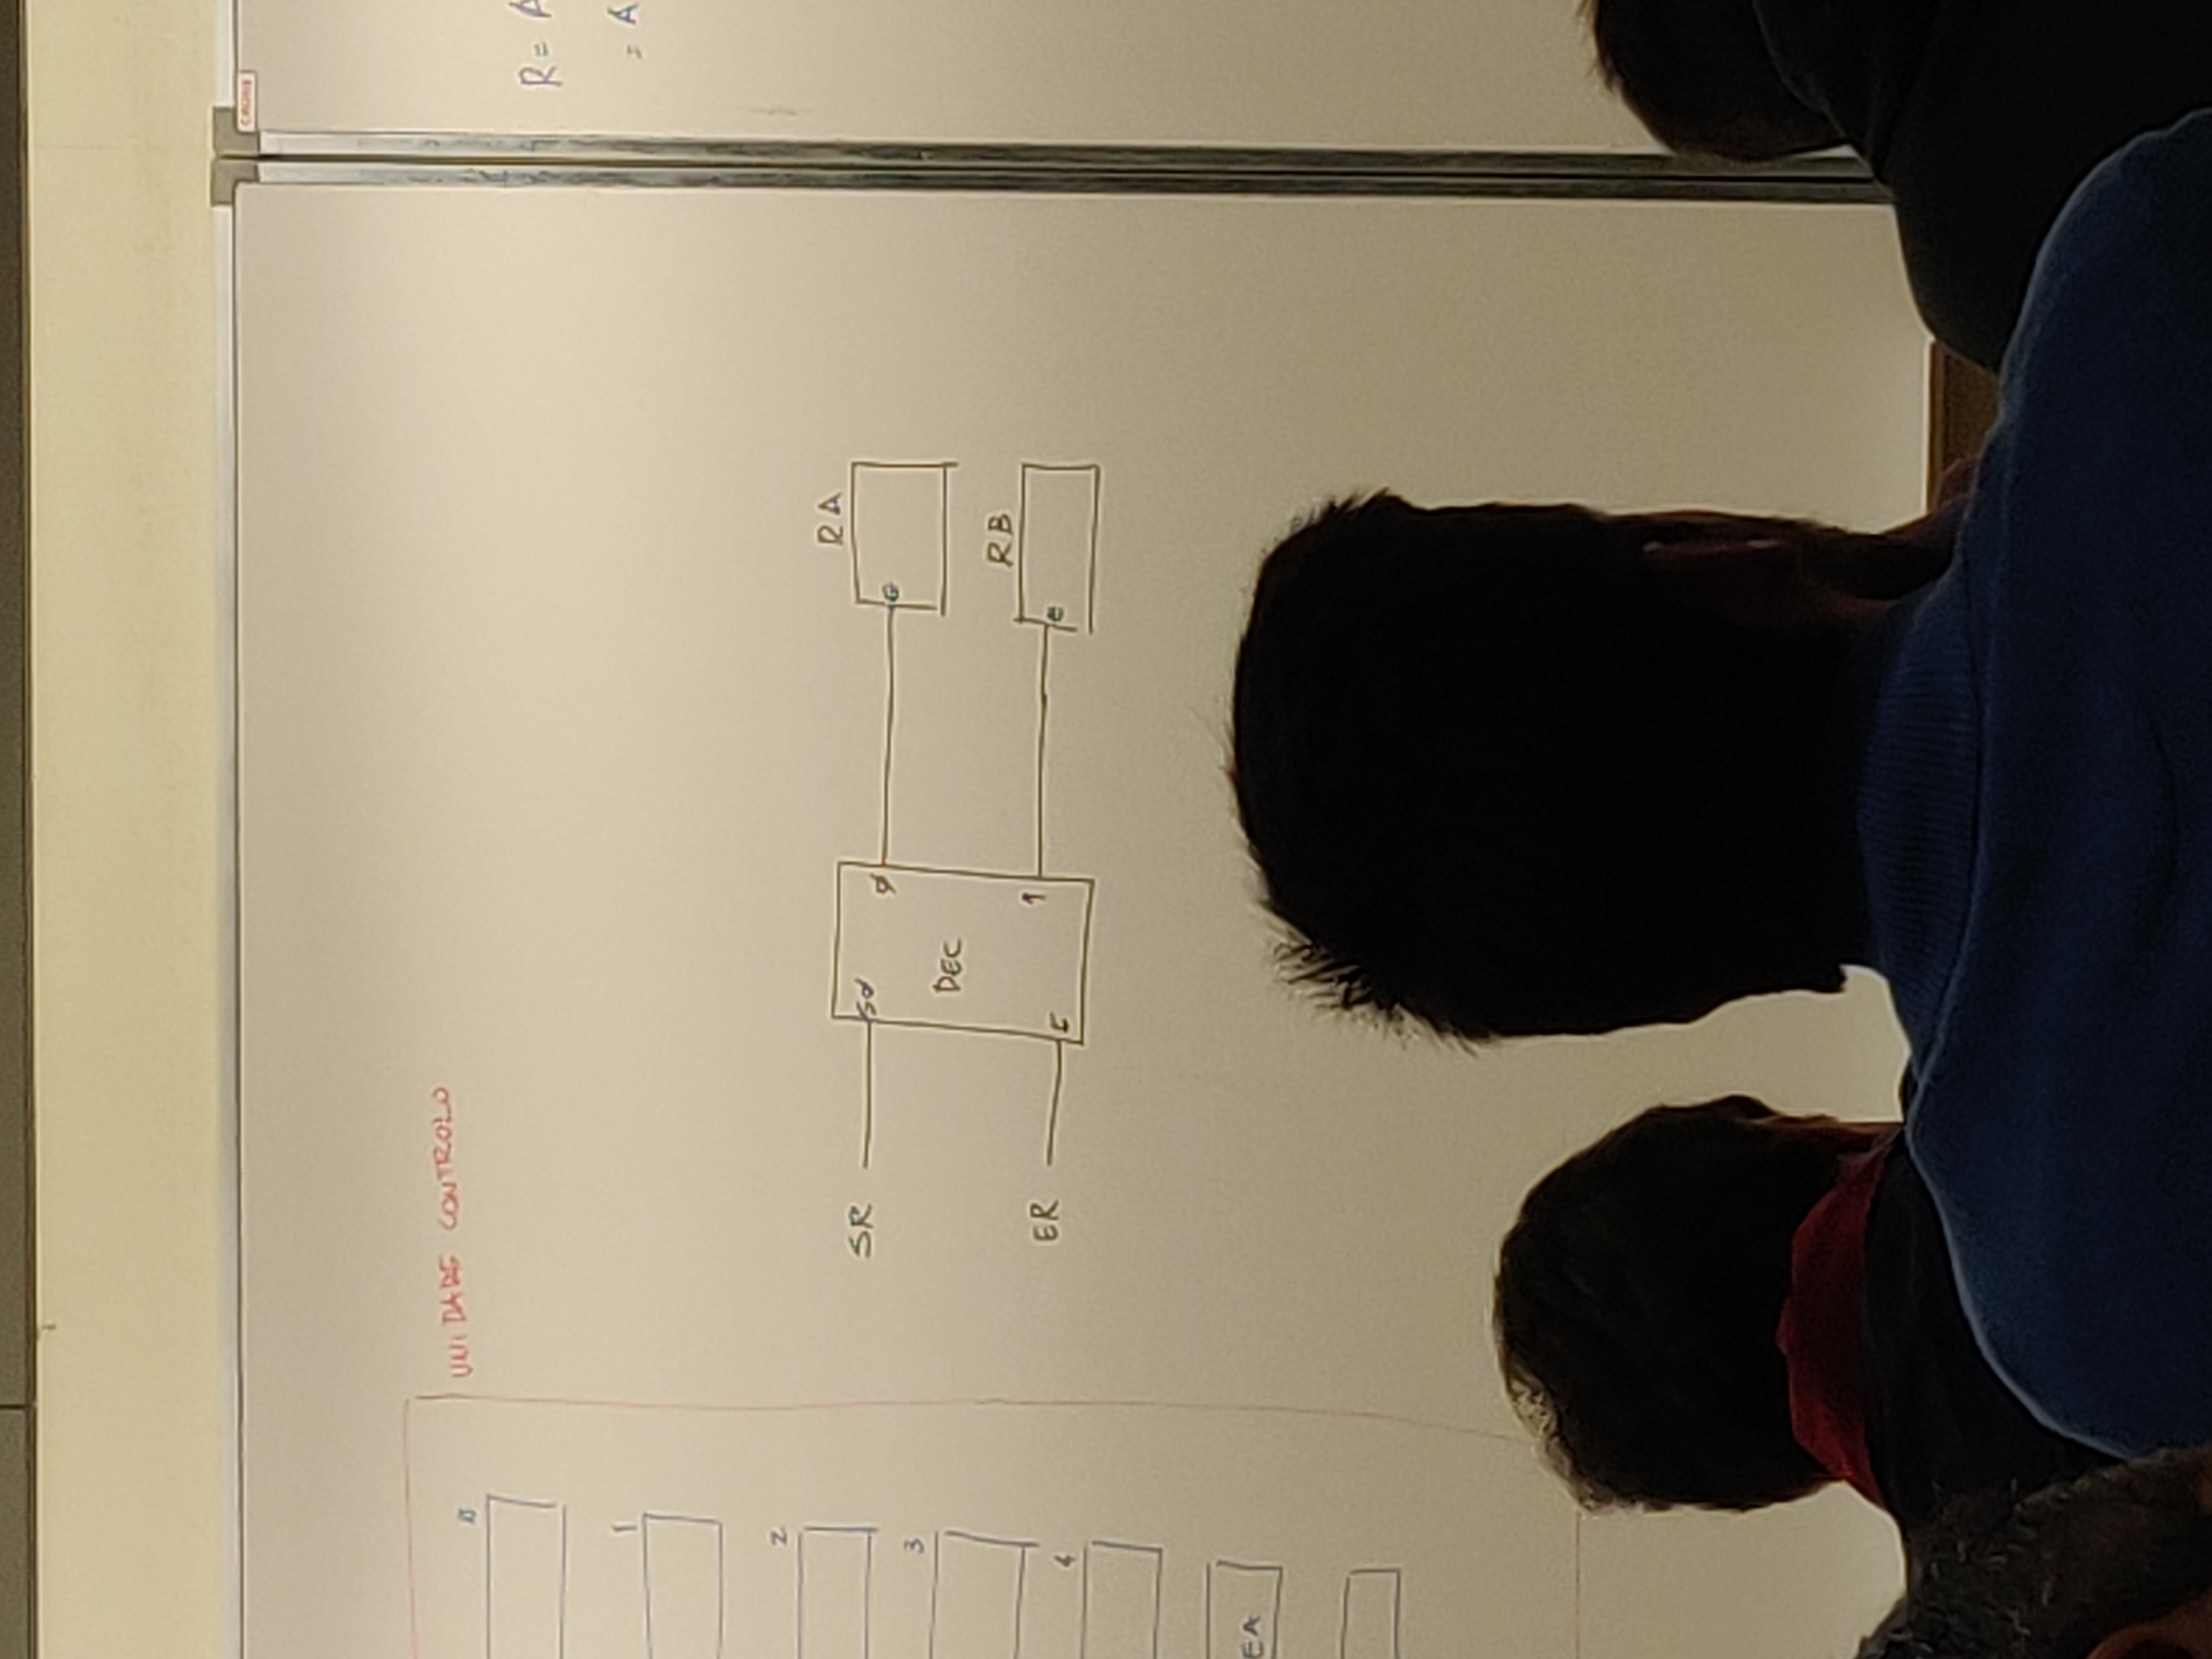 UNIDADE CONTROLO
0
1
2
3
4
EA
SR
S0
0
DEC
ER
E
1
RA
E
RB
E
R= A
= A